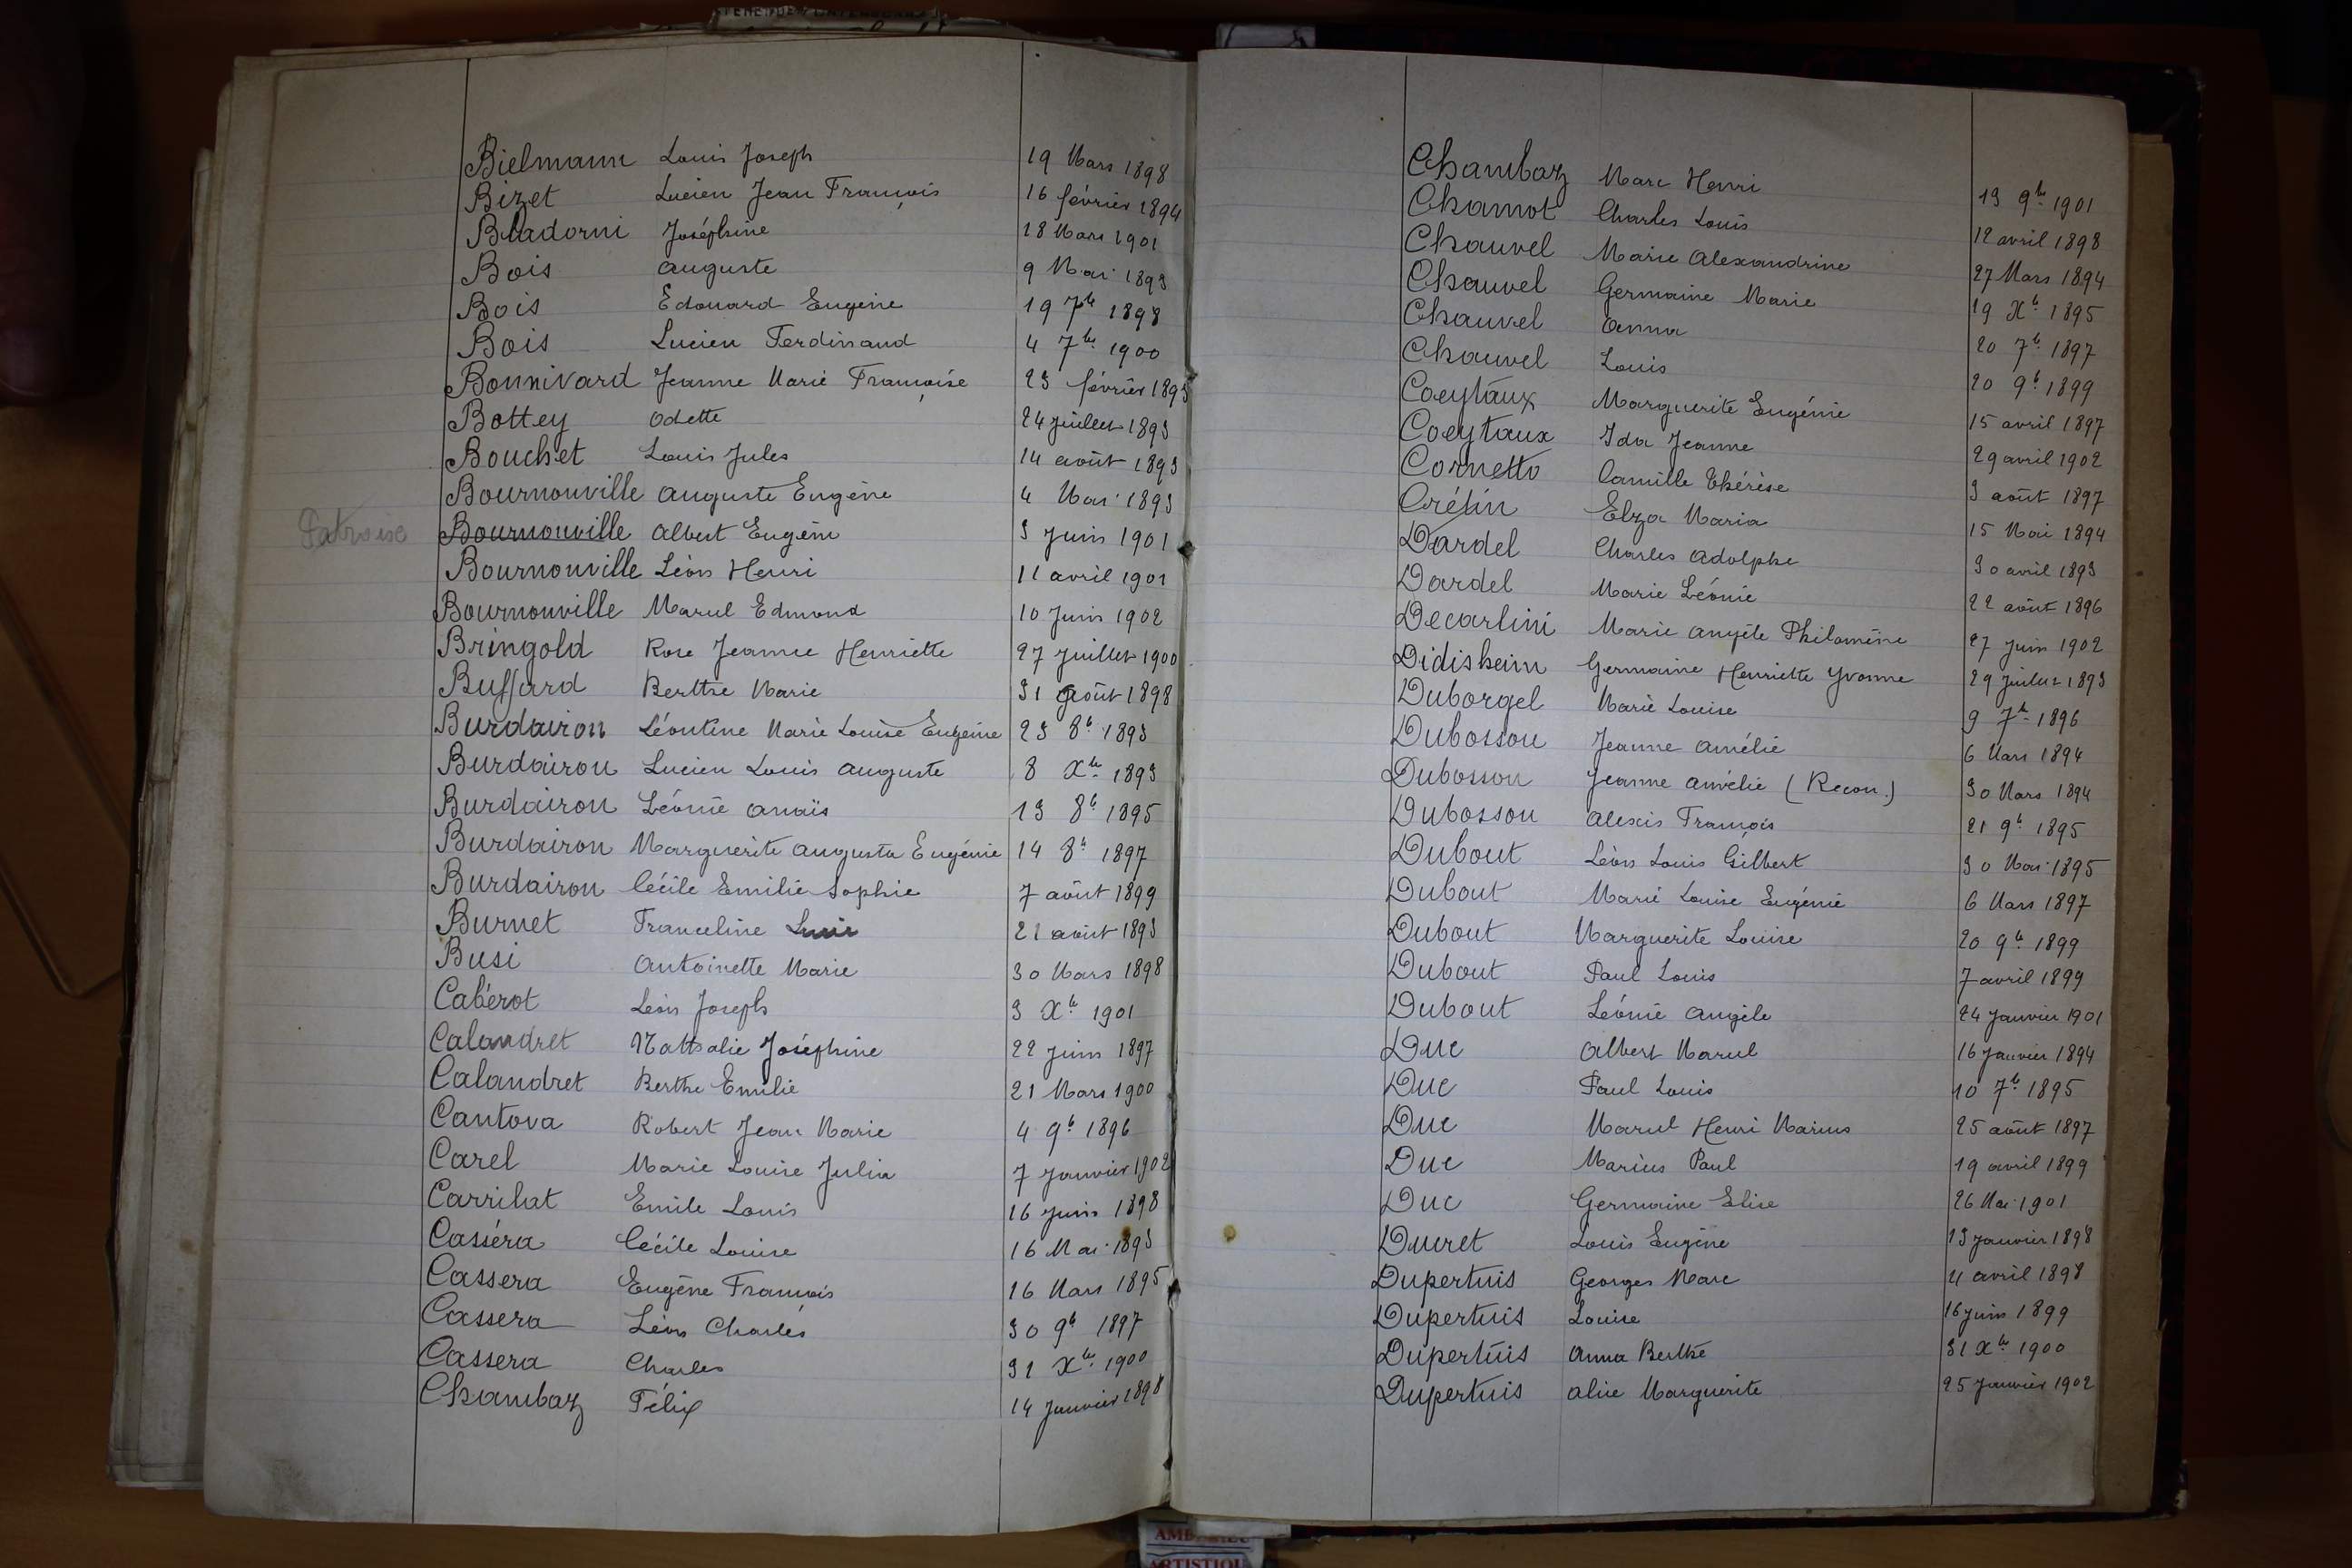 Bielmann Louis Joseph 19 Mars 1898
Bizet Lucien Jean François 16 février 1894
Bladorni Joséphine 18 Mars 1901
Bois Auguste 9 Mai 1893
Bois Edouard Eugène 19 7bre 1898
Bois Lucien Ferdinand 4 7bre 1900
Bonnivard Jeanne Marie Françoise 23 février 1893
Bottey Odette 24 juillet 1893
Bouchet Louis Jules 14 août 1893
Bournonville Auguste Eugène 4 Mai 1893
Bournonville Albert Eugène 3 Juin 1901
Bournonville Léon Henri 11 avril 1901
Bournonville Marcel Edmond 10 Juin 1902
Bringold Rose Jeanne Henriette 27 Juillet 1900
Buffard Berthe Marie 31 août 1898
Burdairon Léontine Marie Louise Eugénie 23 8b 1893
Burdairon Lucien Louis Auguste 8 Xbre 1893
Burdairon Léonie Anaïs 13 8b 1895
Burdairon Marguerite Augusta Eugénie 14 8b 1897
Burdairon Cécile Emilie Sophie 7 août 1899
Burnet Franceline 21 août 1893
Busi Antoinette Marie 30 Mars 1898
Cabérot Léon Joseph 3 Xb 1901
Calandret Nathalie Joséphine 22 Juin 1897
Calandret Berthe Emilie 21 Mars 1900
Cantova Robert Jean Marie 4 9b 1896
Carel Marie Louise Julia 7 Janvier 1902
Carrihat Emile Louis 16 Juin 1898
Casséra Cécile Louise 16 Mai 1893
Cassera Eugène François 16 Mars 1895
Cassera Léon Charles 30 9b 1897
Cassera Charles 31 Xbre 1900
Chambaz Félix 14 Janvier 1898
Chambaz Marc Henri 13 9bre 1901
Chamot Charles Louis 12 avril 1898
Chauvel Marie Alexandrine 27 Mars 1894
Chauvel Germaine Marie 19 Xb 1895
Chauvel Anna 20 7b 1897
Chauvel Louis 20 9b 1899
Coeytaux Marguerite Eugénie 15 avril 1897
Coeytaux Ida Jeanne 29 avril 1902
Cornetto Camille Thérèse 3 août 1897
Crétin Elza Maria 15 Mai 1894
Dardel Charles Adolphe 30 avril 1893
Dardel Marie Léonie 22 août 1896
Decarlini Marie Angèle Philomène 27 Juin 1902
Didisheim Germaine Henriette Yvonne 29 Juillet 1893
Duborgel Marie Louise 9 7b 1896
Dubosson Jeanne Amélie 6 Mars 1894
Dubosson Jeanne Amélie (Recon.) 30 Mars 1894
Dubosson Alexis François 21 9b 1895
Dubout Léon Louis Gilbert 30 Mai 1895
Dubout Marie Louise Eugénie 6 Mars 1897
Dubout Marguerite Louise 20 9b 1899
Dubout Paul Louis 7 avril 1899
Dubout Léonie Angèle 24 Janvier 1901
Duc Albert Marcel 16 Janvier 1894
Duc Paul Louis 10 7b 1895
Duc Marcel Henri Marius 25 août 1897
Duc Marius Paul 19 avril 1899
Duc Germaine Elise 26 Mai 1901
Ducret Louis Eugène 13 Janvier 1898
Dupertuis Georges Marc 4 avril 1898
Dupertuis Louise 16 Juin 1899
Dupertuis Anna Berthe 31 Xbre 1900
Dupertuis Alice Marguerite 25 Janvier 1902